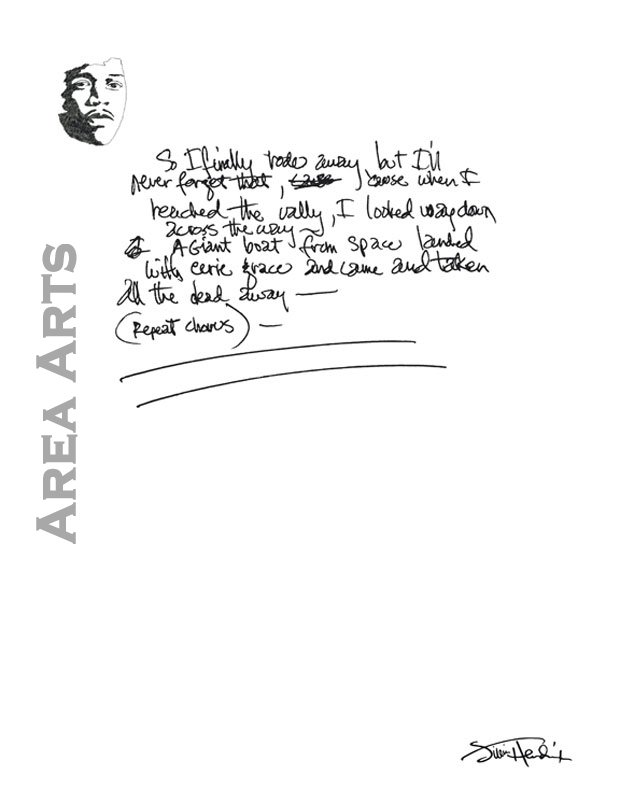 So I finally rode away but I'll
never forget that, cause when I
reached the vally, I looked way down
across the way
A Giant boat from space landed
with eerie grace and came and taken
all the dead away —
(Repeat chorus) —
AREA ARTS
Jimi Hendrix